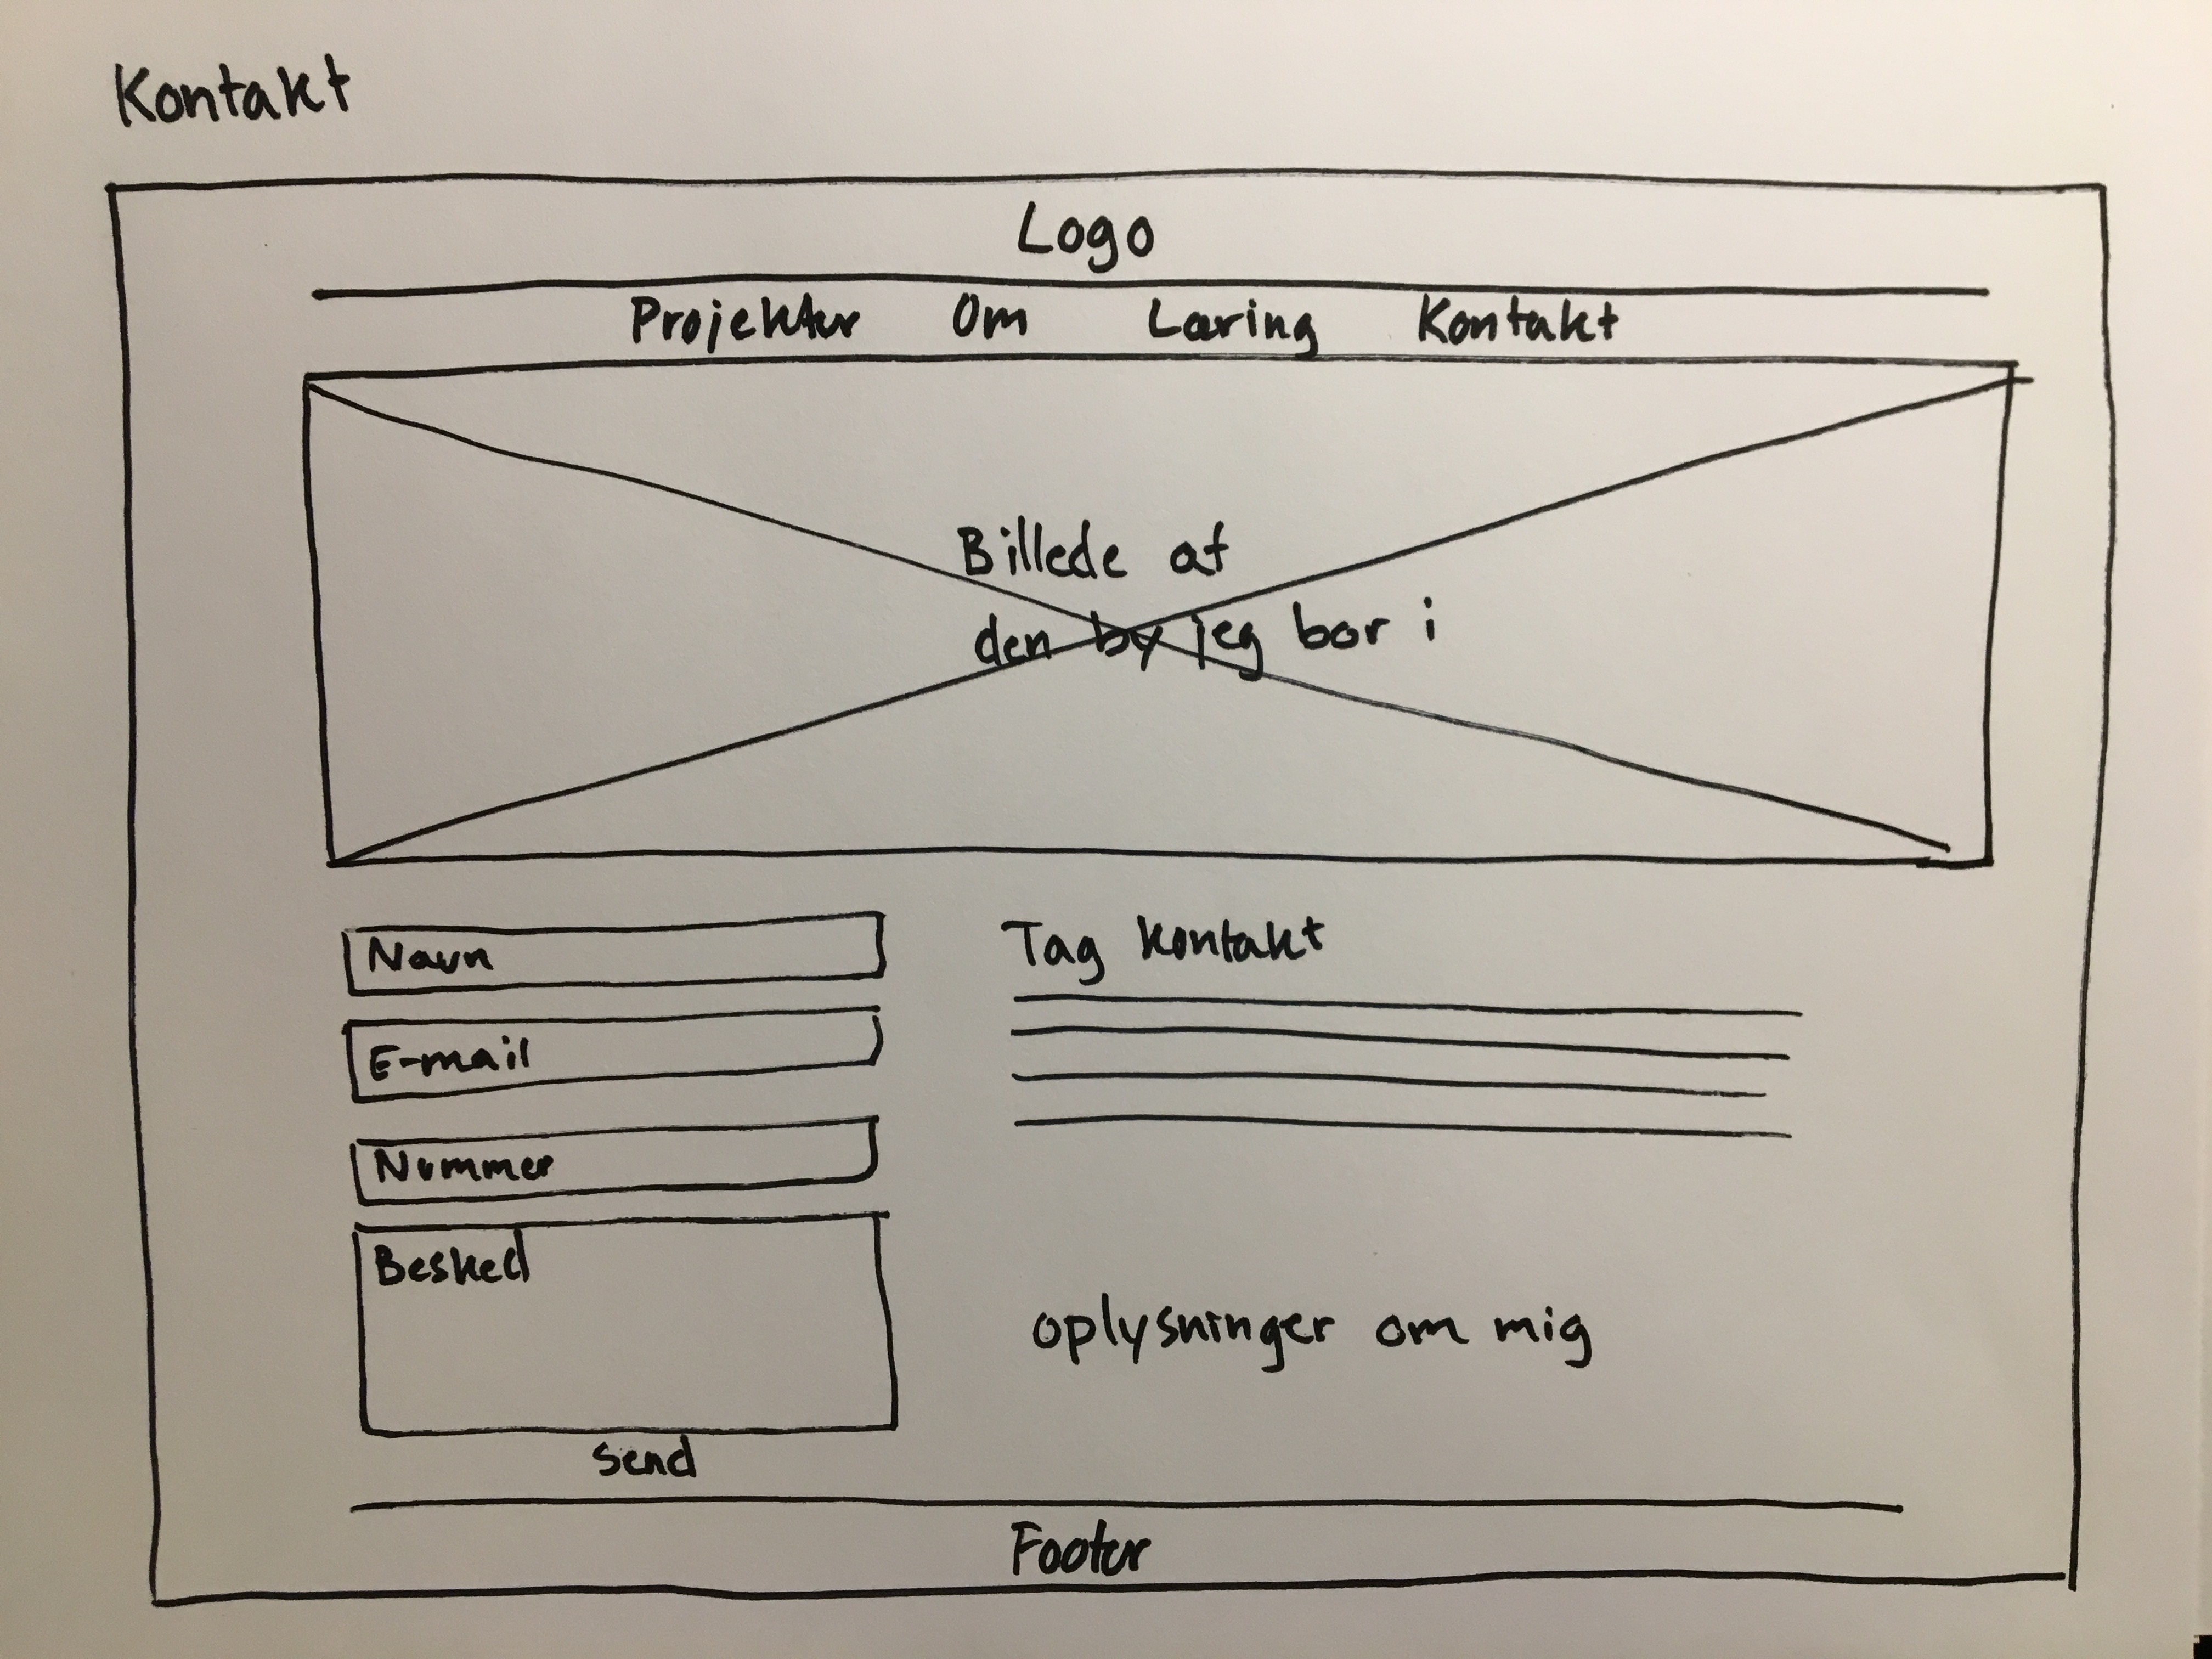 Kontakt
Logo
Projekter Om Læring Kontakt
Billede af
den by jeg bor i
Navn
E-mail
Nummer
Besked
Send
Tag kontakt
oplysninger om mig
Footer